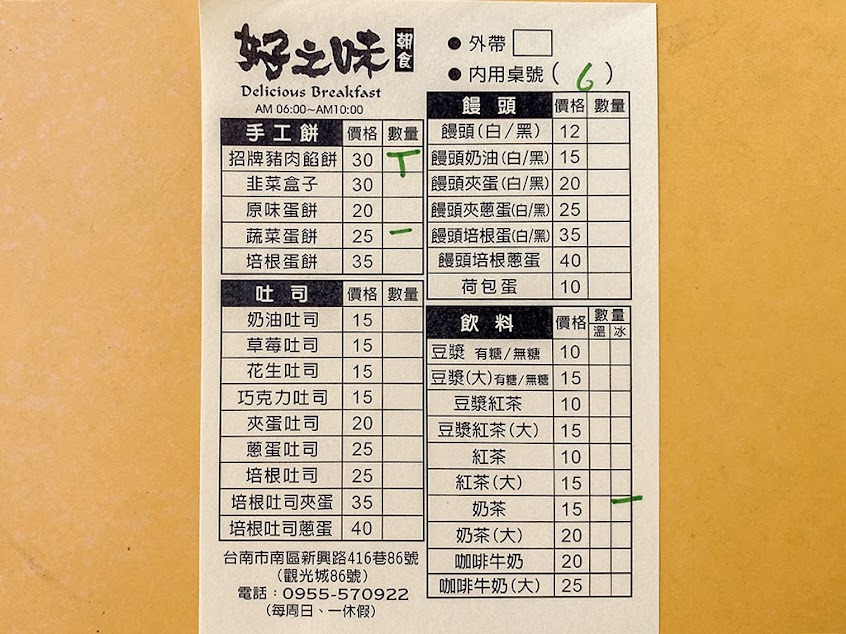 好之味 朝食
Delicious Breakfast
AM 06:00~AM10:00
● 外帶
● 內用桌號( 6 )
手工餅 價格 數量
招牌豬肉餡餅 30 T
韭菜盒子 30
原味蛋餅 20
蔬菜蛋餅 25 一
培根蛋餅 35
吐司 價格 數量
奶油吐司 15
草莓吐司 15
花生吐司 15
巧克力吐司 15
夾蛋吐司 20
蔥蛋吐司 25
培根吐司 25
培根吐司夾蛋 35
培根吐司蔥蛋 40
台南市南區新興路416巷86號
(觀光城86號)
電話:0955-570922
(每周日、一休假)
饅頭 價格 數量
饅頭(白/黑) 12
饅頭奶油(白/黑) 15
饅頭夾蛋(白/黑) 20
饅頭夾蔥蛋(白/黑) 25
饅頭培根蛋(白/黑) 35
饅頭培根蔥蛋 40
荷包蛋 10
飲料 價格 數量
溫 冰
豆漿 有糖/無糖 10
豆漿(大)有糖/無糖 15
豆漿紅茶 10
豆漿紅茶(大) 15
紅茶 10
紅茶(大) 15
奶茶 15 一
奶茶(大) 20
咖啡牛奶 20
咖啡牛奶(大) 25